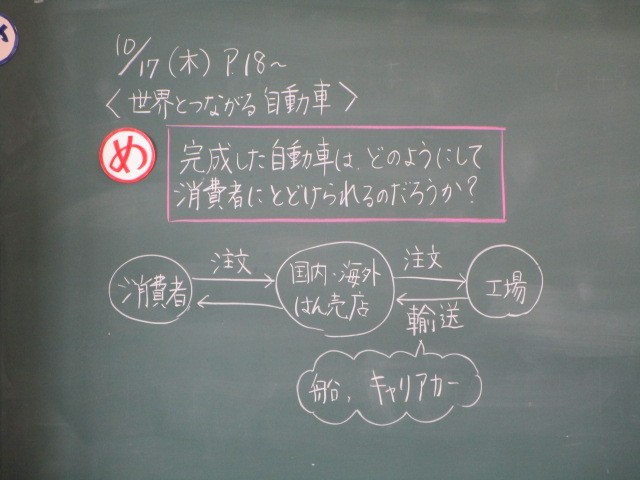 10/17(木) P.18~
〈世界とつながる自動車〉
め
完成した自動車は、どのようにして
消費者にとどけられるのだろうか?
消費者
注文
国内・海外
はん売店
注文
輸送
工場
船、キャリアカー